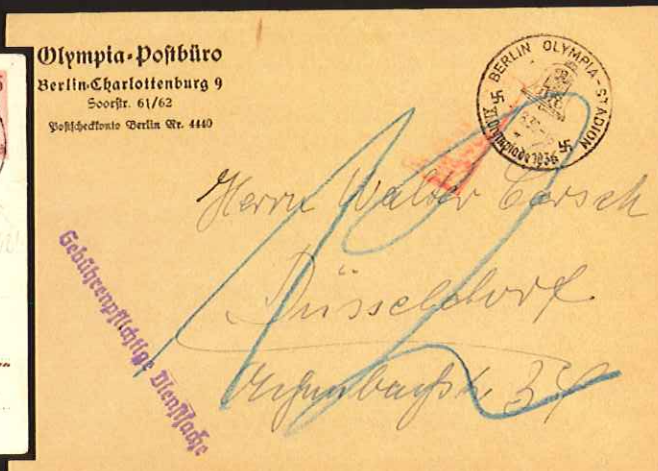 Olympia-Postbüro
Berlin-Charlottenburg 9
Soorstr. 61/62
Postscheckkonto Berlin Nr. 4440
BERLIN OLYMPIA-STADION
Herrn Walter
Düsseldorf
Gebührenpflichtige Dienstsache